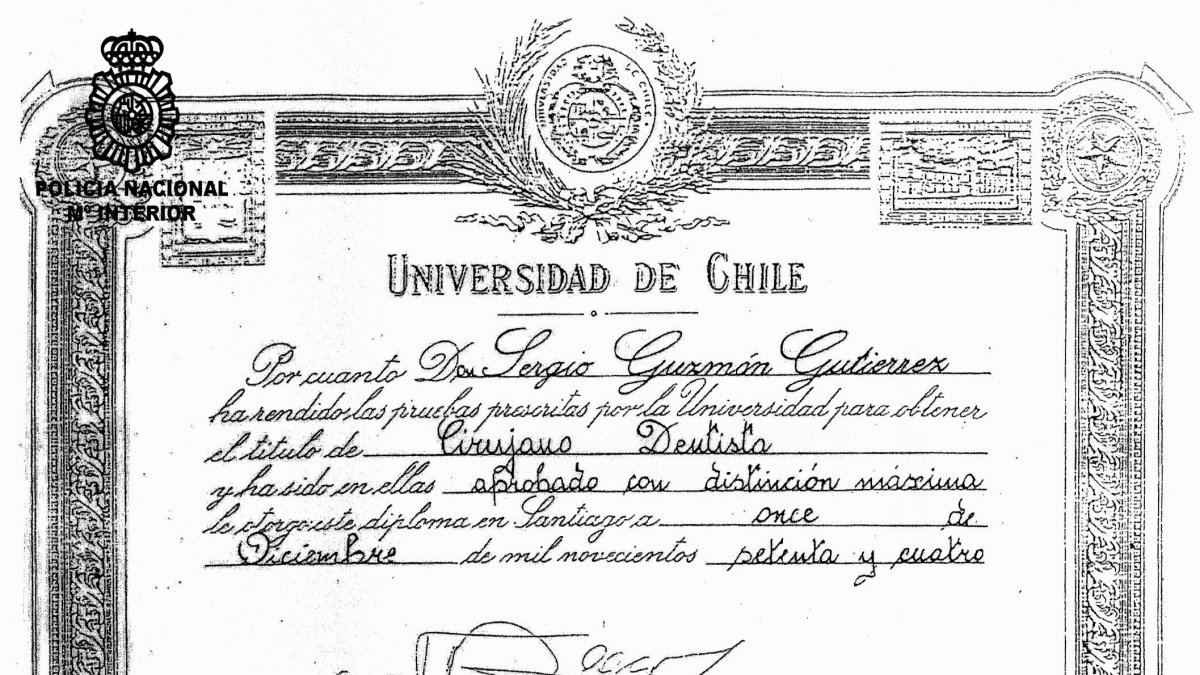 POLICIA NACIONAL
Mº INTERIOR
UNIVERSIDAD DE CHILE
UNIVERSIDAD DE CHILE
Por cuanto Don Sergio Guzmán Gutierrez
ha rendido las pruebas prescritas por la Universidad para obtener
el titulo de Cirujano Dentista
y ha sido en ellas aprobado con distinción máxima
le otorga este diploma en Santiago a once de
Diciembre de mil novecientos setenta y cuatro